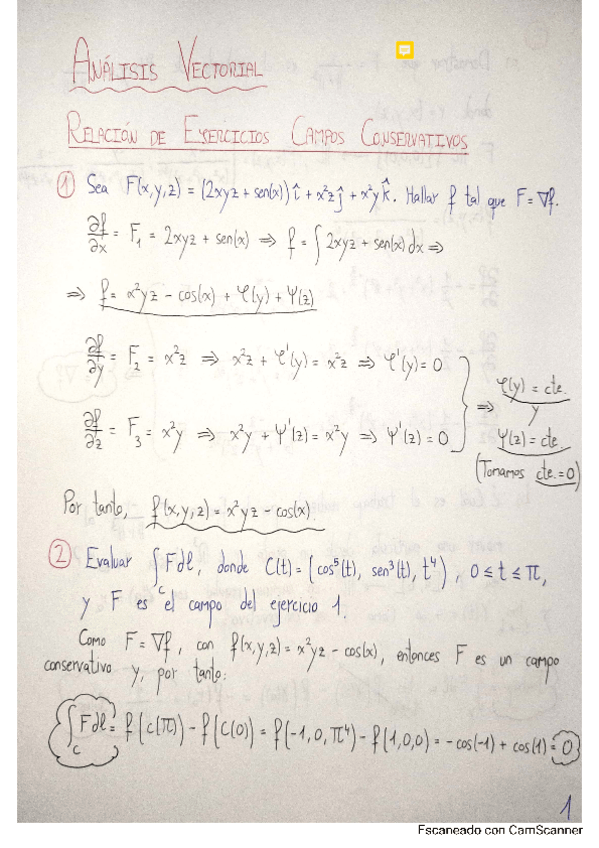 ANÁLISIS VECTORIAL
RELACIÓN DE EJERCICIOS CAMPOS CONSERVATIVOS
① Sea F(x,y,z) = (2xyz + sen(x)) î + x²z ĵ + x²y k̂. Hallar f tal que F = ∇f.
∂f/∂x = F₁ = 2xyz + sen(x) ⇒ f = ∫ 2xyz + sen(x) dx ⇒
⇒ f = x²yz - cos(x) + φ(y) + ψ(z)
∂f/∂y = F₂ = x²z ⇒ x²z + φ'(y) = x²z ⇒ φ'(y) = 0
∂f/∂z = F₃ = x²y ⇒ x²y + ψ'(z) = x²y ⇒ ψ'(z) = 0
⇒ φ(y) = cte.
y
ψ(z) = cte.
(Tomamos cte. = 0)
Por tanto, f(x,y,z) = x²yz - cos(x).
② Evaluar ∫_C F dl, donde C(t) = (cos⁵(t), sen³(t), t⁴), 0 ≤ t ≤ π,
y F es el campo del ejercicio 1.
Como F = ∇f, con f(x,y,z) = x²yz - cos(x), entonces F es un campo
conservativo y, por tanto:
∫_C F dl = f(C(π)) - f(C(0)) = f(-1, 0, π⁴) - f(1,0,0) = -cos(-1) + cos(1) = 0
1
Escaneado con CamScanner